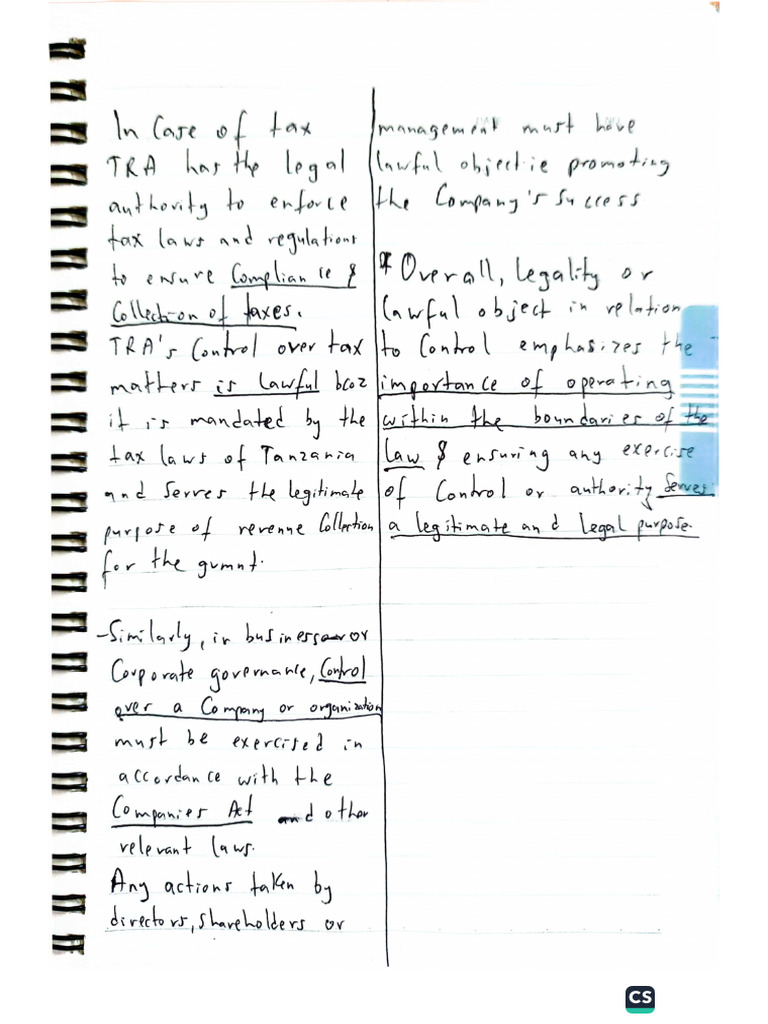 In Case of tax
TRA has the legal
authority to enforce
tax laws and regulations
to ensure Compliance &
Collection of taxes.
TRA's Control over tax
matters is lawful bcoz
it is mandated by the
tax laws of Tanzania
and serves the legitimate
purpose of revenue Collection
for the gvmnt.
- Similarly, in business or
Corporate governance, Control
over a Company or organization
must be exercised in
accordance with the
Companies Act and other
relevant laws.
Any actions taken by
directors, shareholders or
management must have
lawful object ie promoting
the Company's Success
* Overall, legality or
lawful object in relation
to Control emphasizes the
importance of operating
within the boundaries of the
law & ensuring any exercise
of Control or authority Serves
a legitimate and legal purpose.
CS